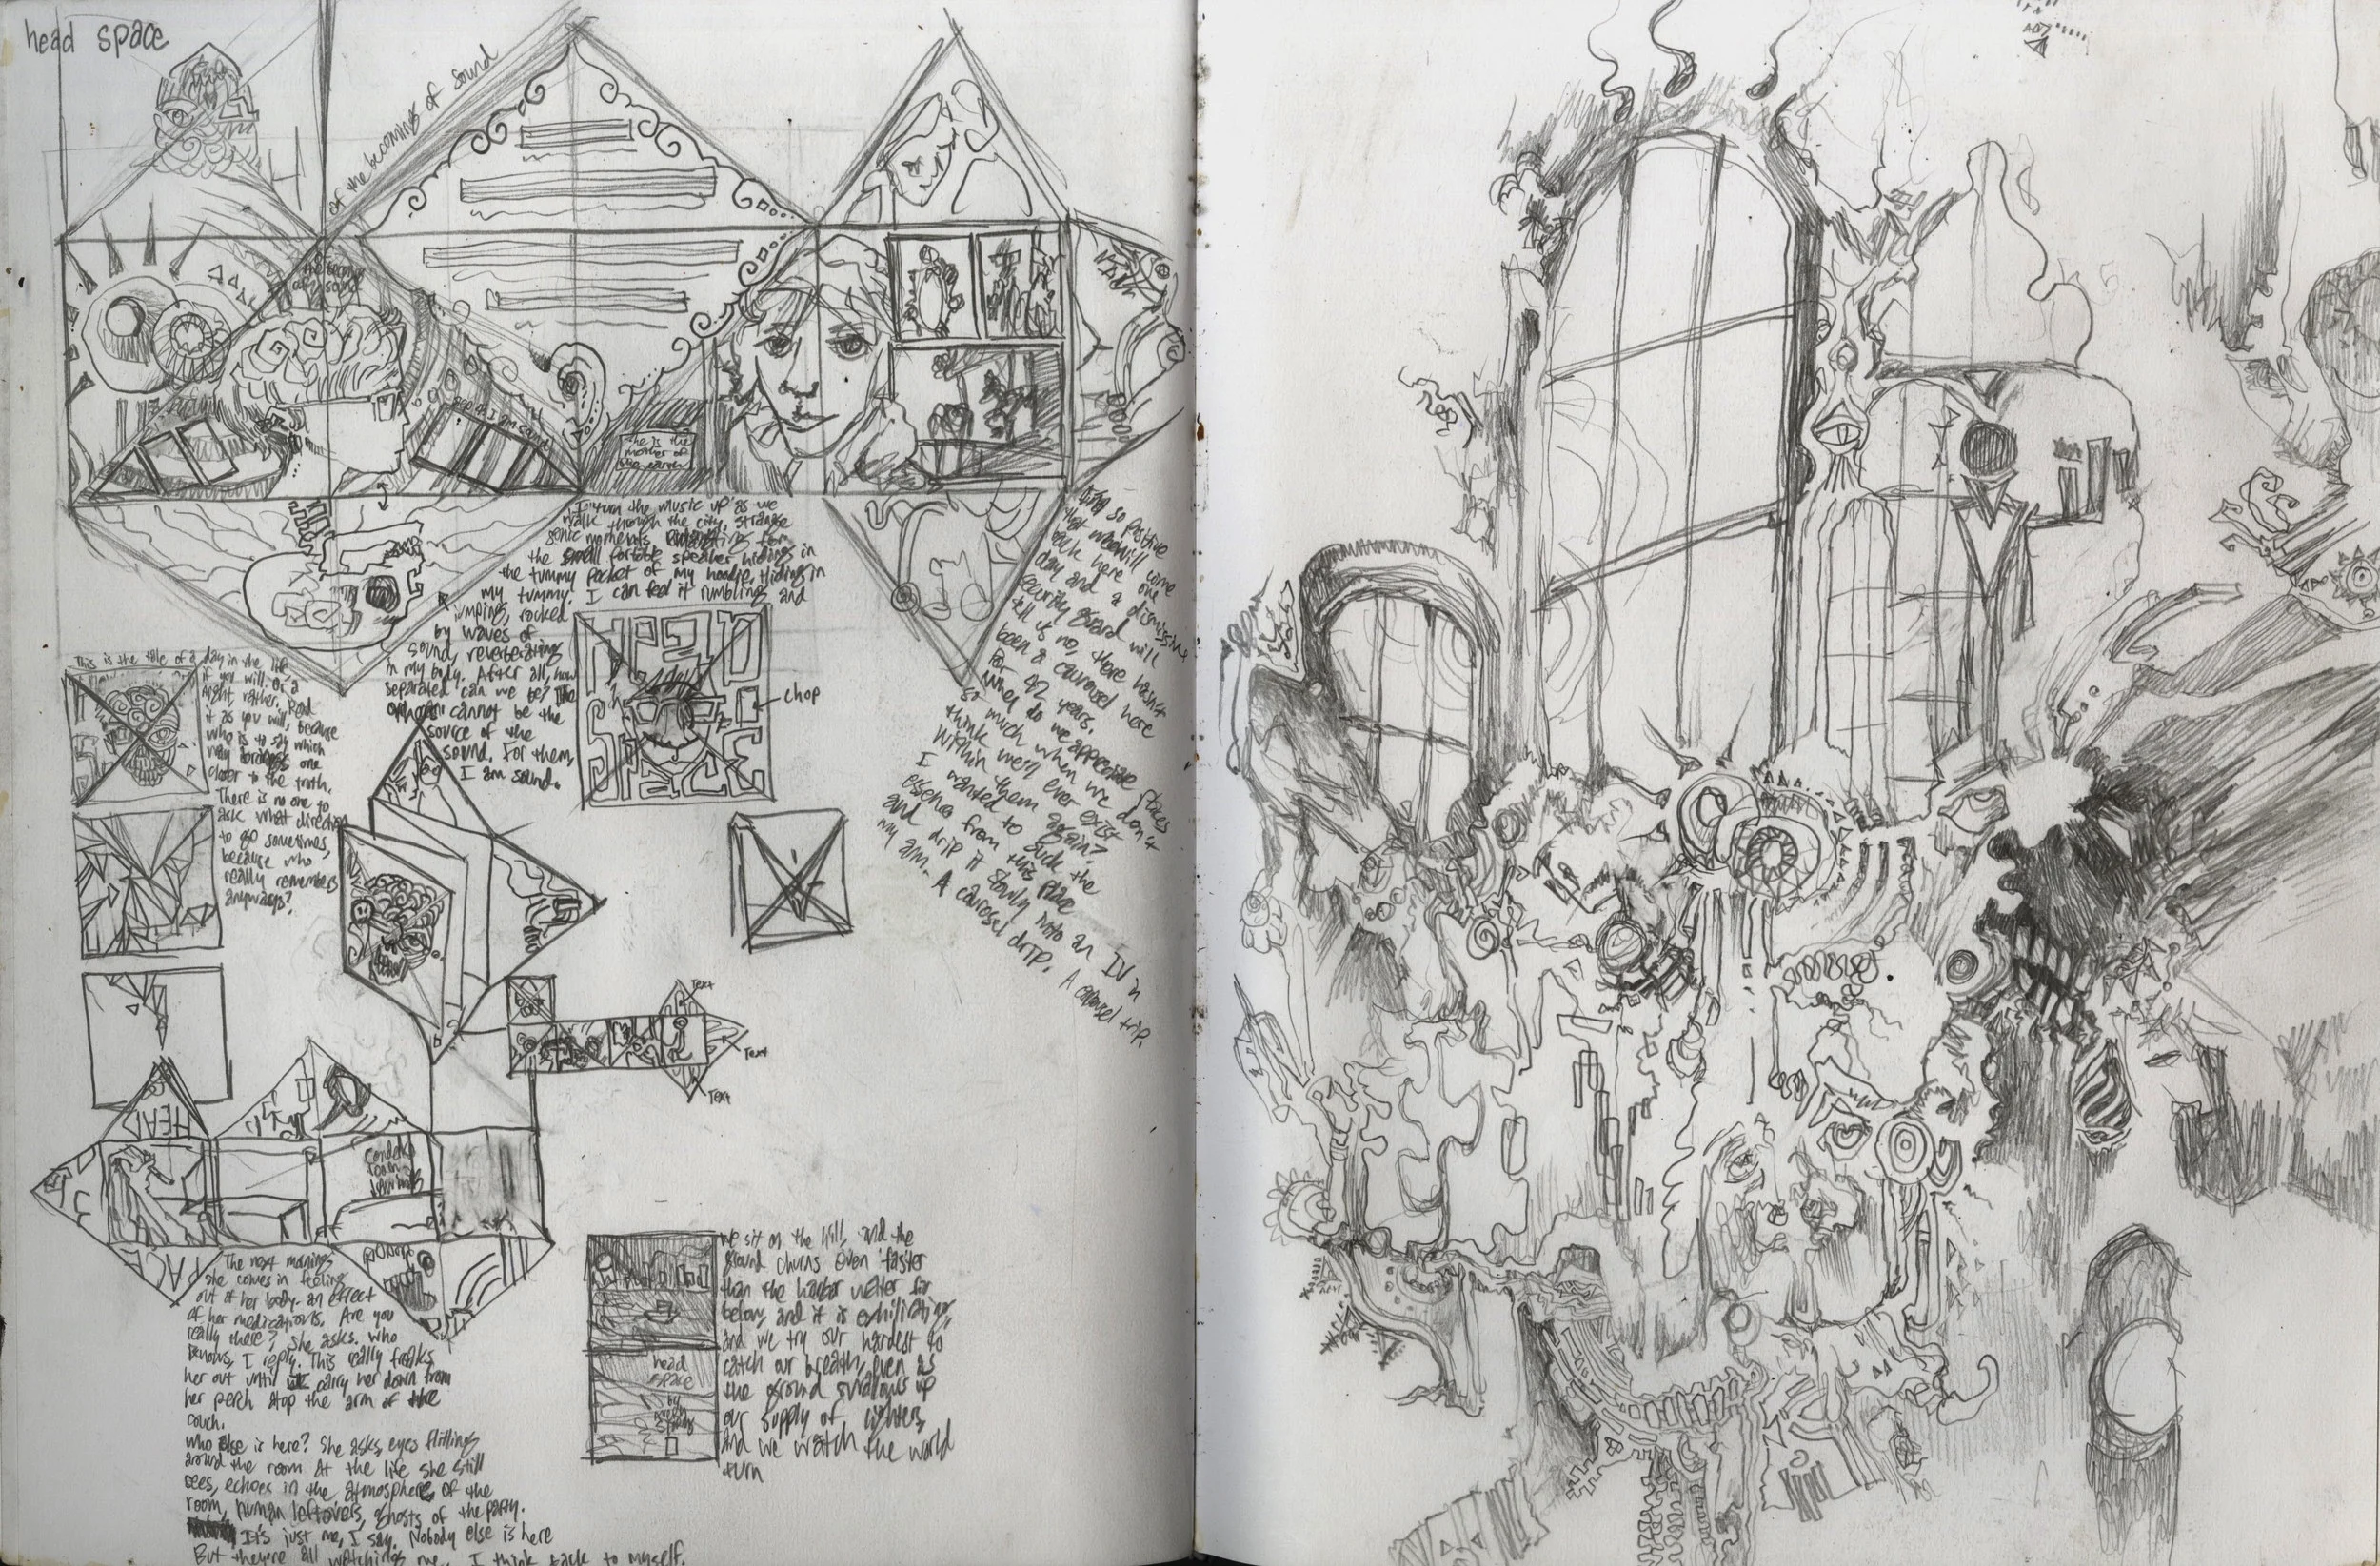 head space
of the becomings of sound
she is the
mother of
the earth
I turn the music up as we
walk through the city, strange
sonic moments
the small portable speaker hiding in
the tummy pocket of my hoodie. Hiding in
my tummy. I can feel it rumbling and
jumping, rocked
by waves of
sound, reverberating
in my body. After all, how
separated can we be? The
cannot be the
source of the
sound. For them,
I am sound.
so positive
that we will come
back here one
day and a dismissive
security guard will
tell us no, there hasn't
been a carousel here
for 42 years.
Why do we appreciate places
so much when we don't
think we'll ever exist
within them again?
I wanted to suck the
essence from this place
and drip it slowly into an IV in
my arm. A carousel drip. A carousel trip.
This is the tale of a day in the life,
if you will. Or a
night, rather. Read
it as you will, because
who is to say which
way brings one
closer to the truth.
There is no one to
ask what direction
to go sometimes,
because who
really remembers
anyways?
chop
Text
Text
Text
HEAD
SPACE
The next morning
she comes in feeling
out of her body- an effect
of her medications. Are you
really there? She asks. Who
knows, I reply. This really freaks
her out until I carry her down from
her perch atop the arm of the
couch.
Who else is here? She asks, eyes flitting
around the room at the life she still
sees, echoes in the atmosphere of the
room, human leftovers, ghosts of the party.
It's just me, I say. Nobody else is here
But they're all watching me, I think back to myself.
head
space
by
we sit on the hill, and the
ground churns even faster
than the harbor water far
below, and it is exhilirating,
and we try our hardest to
catch our breath, even as
the ground swallows up
our supply of lighters,
and we watch the world
turn